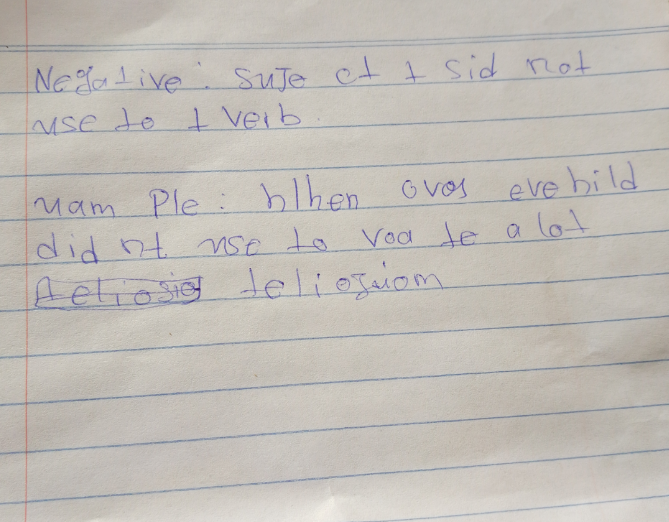 Negative: Suje ct t sid not
use to t verb.
uam Ple: hlhen ovos evehild
did nt use to voa te a lot
teliosuiom